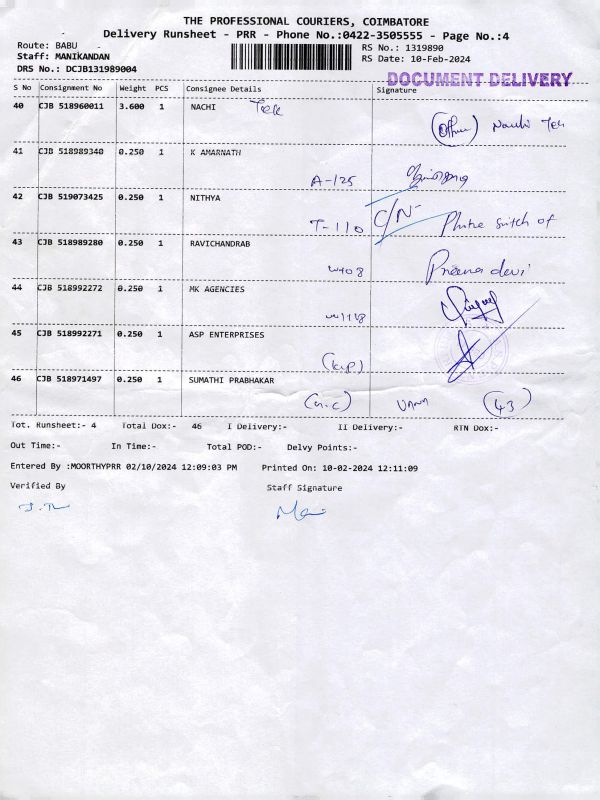 THE PROFESSIONAL COURIERS, COIMBATORE
Delivery Runsheet - PRR - Phone No.:0422-3505555 - Page No.:4
Route: BABU
Staff: MANIKANDAN
DRS No.: DCJB131989004
RS No.: 1319890
RS Date: 10-Feb-2024
DOCUMENT DELIVERY
S No Consignment No Weight PCS Consignee Details Signature
40 CJB 518960011 3.600 1 NACHI
41 CJB 518989340 0.250 1 K AMARNATH
A-125
42 CJB 519073425 0.250 1 NITHYA
T-110 C/N- switch of
43 CJB 518989280 0.250 1 RAVICHANDRAB
W408 Preena devi
44 CJB 518992272 0.250 1 MK AGENCIES
45 CJB 518992271 0.250 1 ASP ENTERPRISES
46 CJB 518971497 0.250 1 SUMATHI PRABHAKAR
(43)
Tot. Runsheet:- 4 Total Dox:- 46 I Delivery:- II Delivery:- RTN Dox:-
Out Time:- In Time:- Total POD:- Delvy Points:-
Entered By :MOORTHYPRR 02/10/2024 12:09:03 PM Printed On: 10-02-2024 12:11:09
Verified By Staff Signature